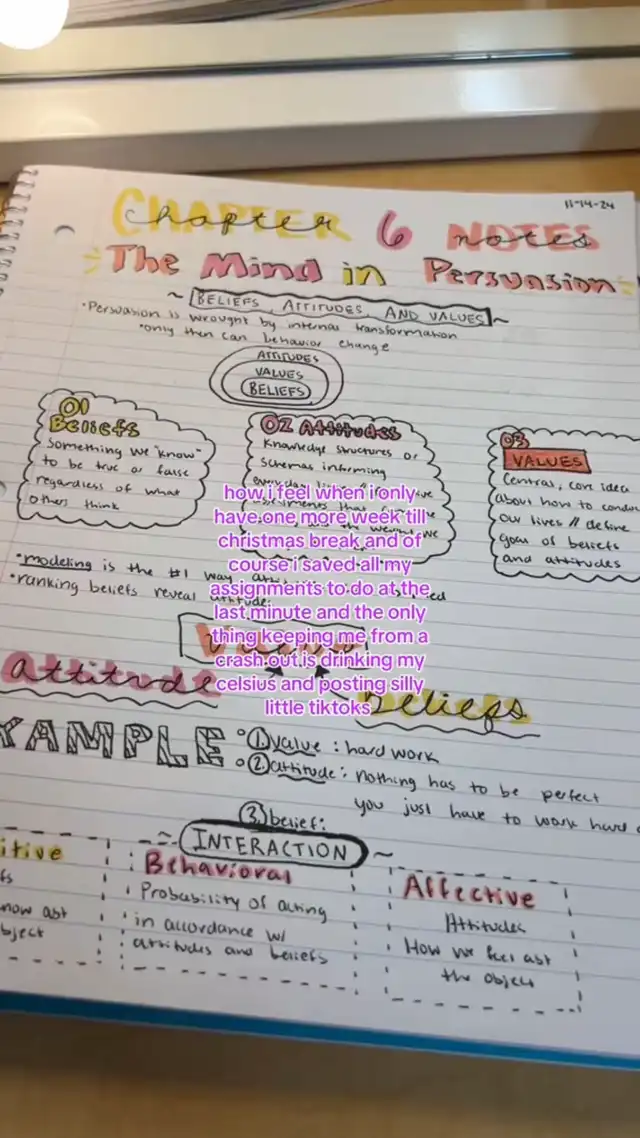 11-14-24
CHAPTER chapter 6 NOTES notes
The Mind in Persuasion
~ BELIEFS, ATTITUDES, AND VALUES ~
•Persuasion is wrought by internal transformation
•only then can behavior change
ATTITUDES
VALUES
BELIEFS
01
Beliefs
Something we "know"
to be true or false
regardless of what
others think
02 Attitudes
Knowledge structures or
schemas informing
03
VALUES
Central, core idea
about how to condu
our lives // define
goas of beliefs
and attitudes
how i feel when i only
have one more week till
christmas break and of
course i saved all my
assignments to do at the
last minute and the only
thing keeping me from a
crash out is drinking my
celsius and posting silly
little tiktoks
•modeling is the #1 way
•ranking beliefs reveal
Attitude
Beliefs
XAMPLE
① value : hard work
② attitude : nothing has to be perfect
you just have to work hard
③ belief:
~ INTERACTION ~
itive
fs
now abt
bject
Behavioral
Probability of acting
in accordance w/
attitudes and beliefs
Affective
Attitudes
How we feel abt
the object